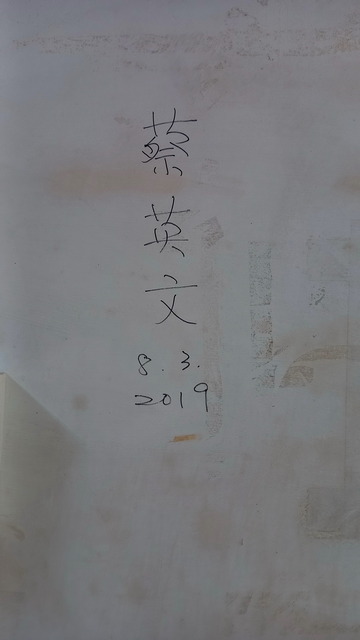 蔡英文
8.3.
2019